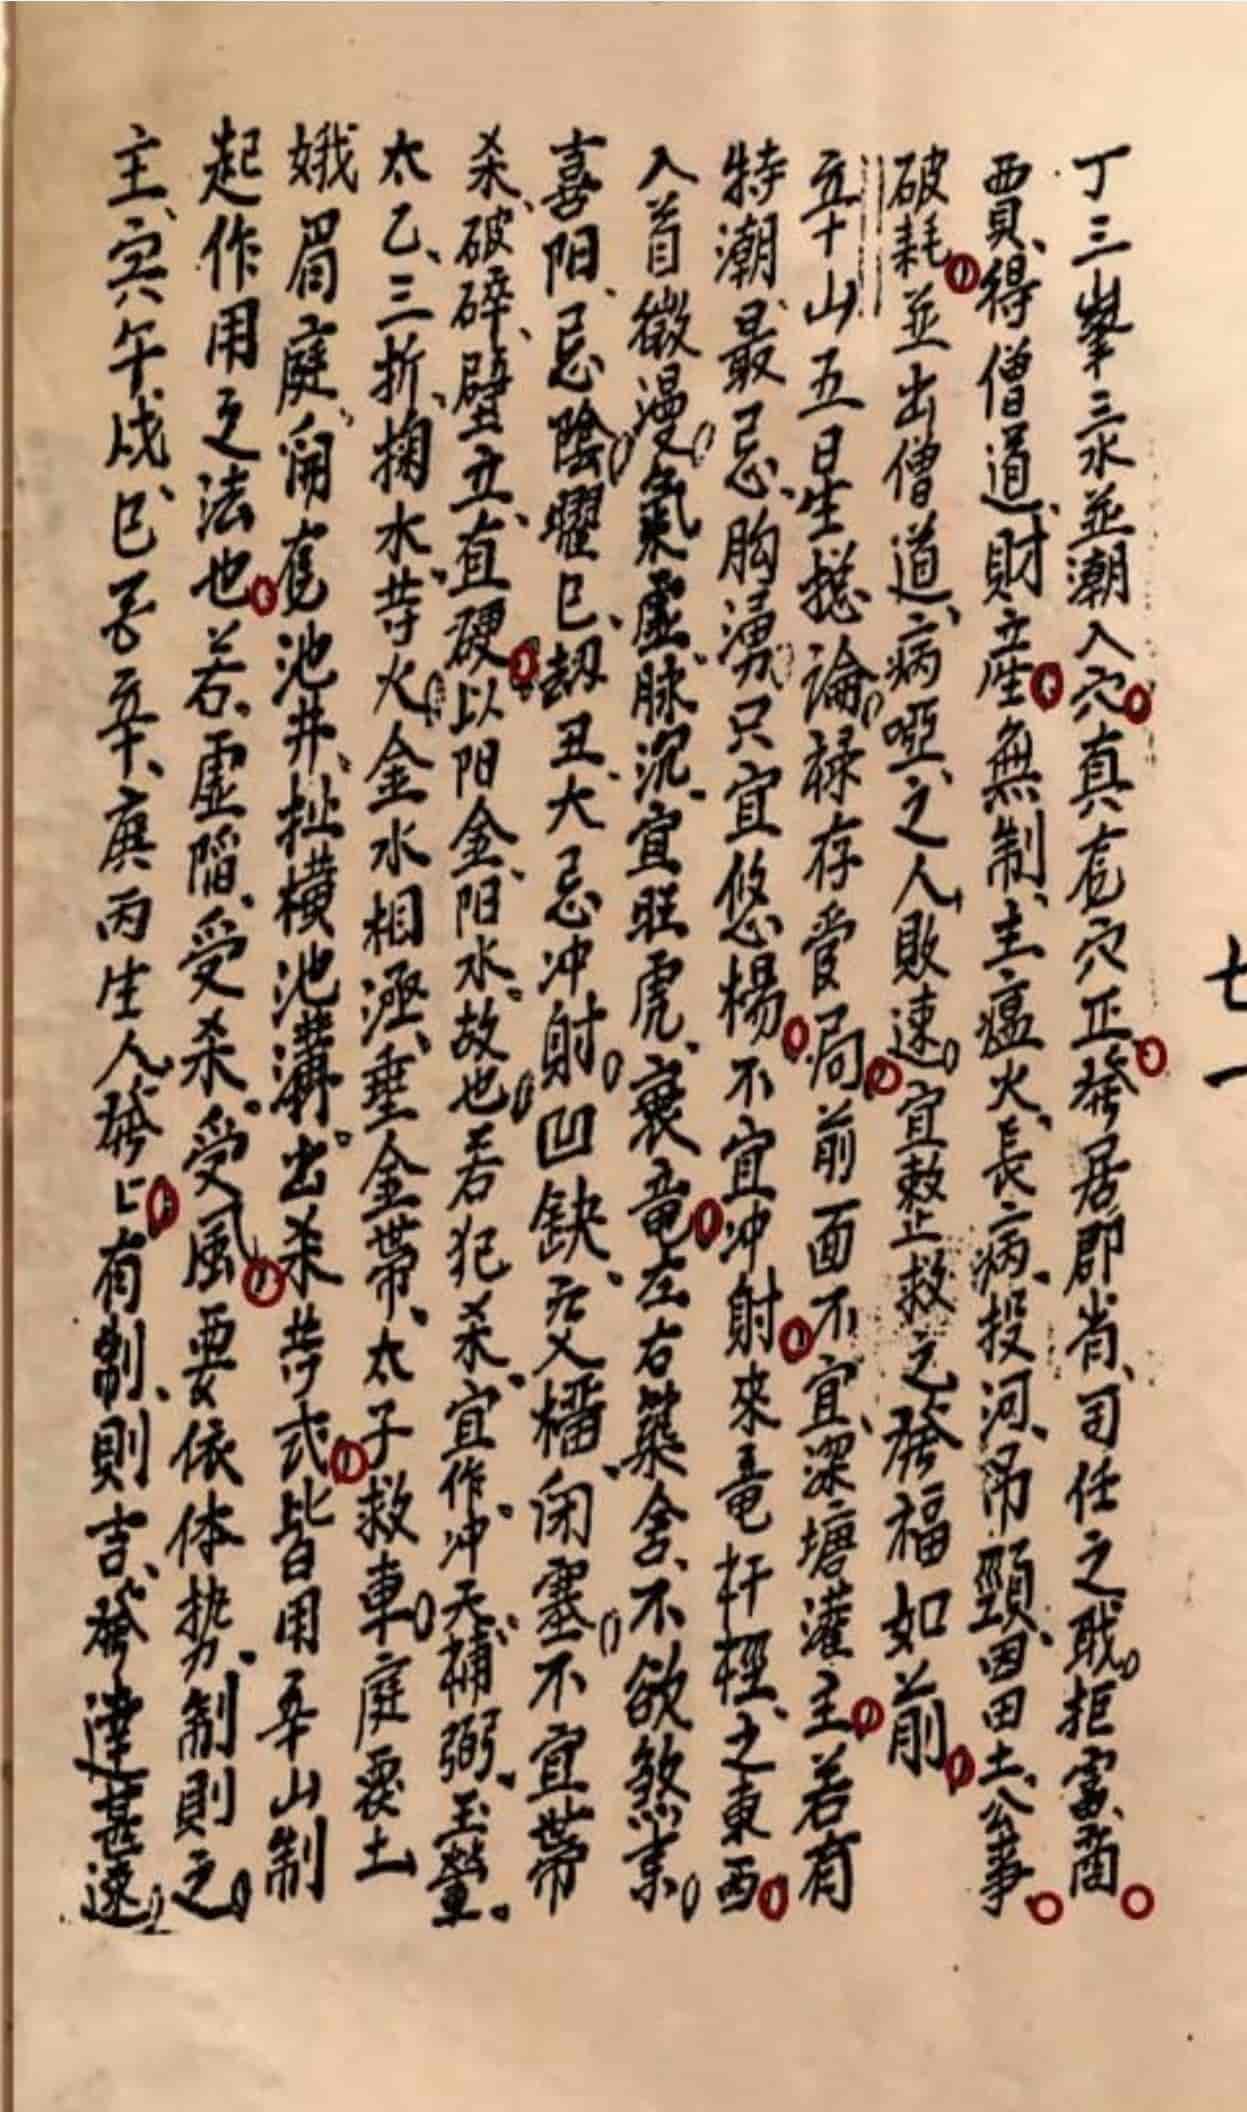 丁三峯三水並潮入穴真竜穴正發居郡省司任之戝拒富商
賈得僧道財産無制主瘟火長病投河吊頸因田土公事
破耗並出僧道病啞之人敗速宜整救之發福如前
辛山五星挺論禄存管局前面不宜深塘灌主若有
特潮最忌胸湧只宜悠楊不宜冲射來竜杆輕之東西
入首微漫氣虛脉沉宜旺虎衰竜左右築舍不欲煞京
喜阳忌陰曜巳刼丑大忌冲射凹缺交檣闭塞不宜带
杀破碎壁立直硬以阳金阳水故也若犯杀宜作冲天補弼玉輦
太乙三折掬水苛火金水相逕垂金帶太子救車庭要土
娥眉庭開竜池井扯橫池溝出杀苛式皆用辛山制
起作用之法也若虛陷受杀受風要依体势制則之
主寅午戍巳丟辛庚丙生人發上有制則吉發達甚速
七一